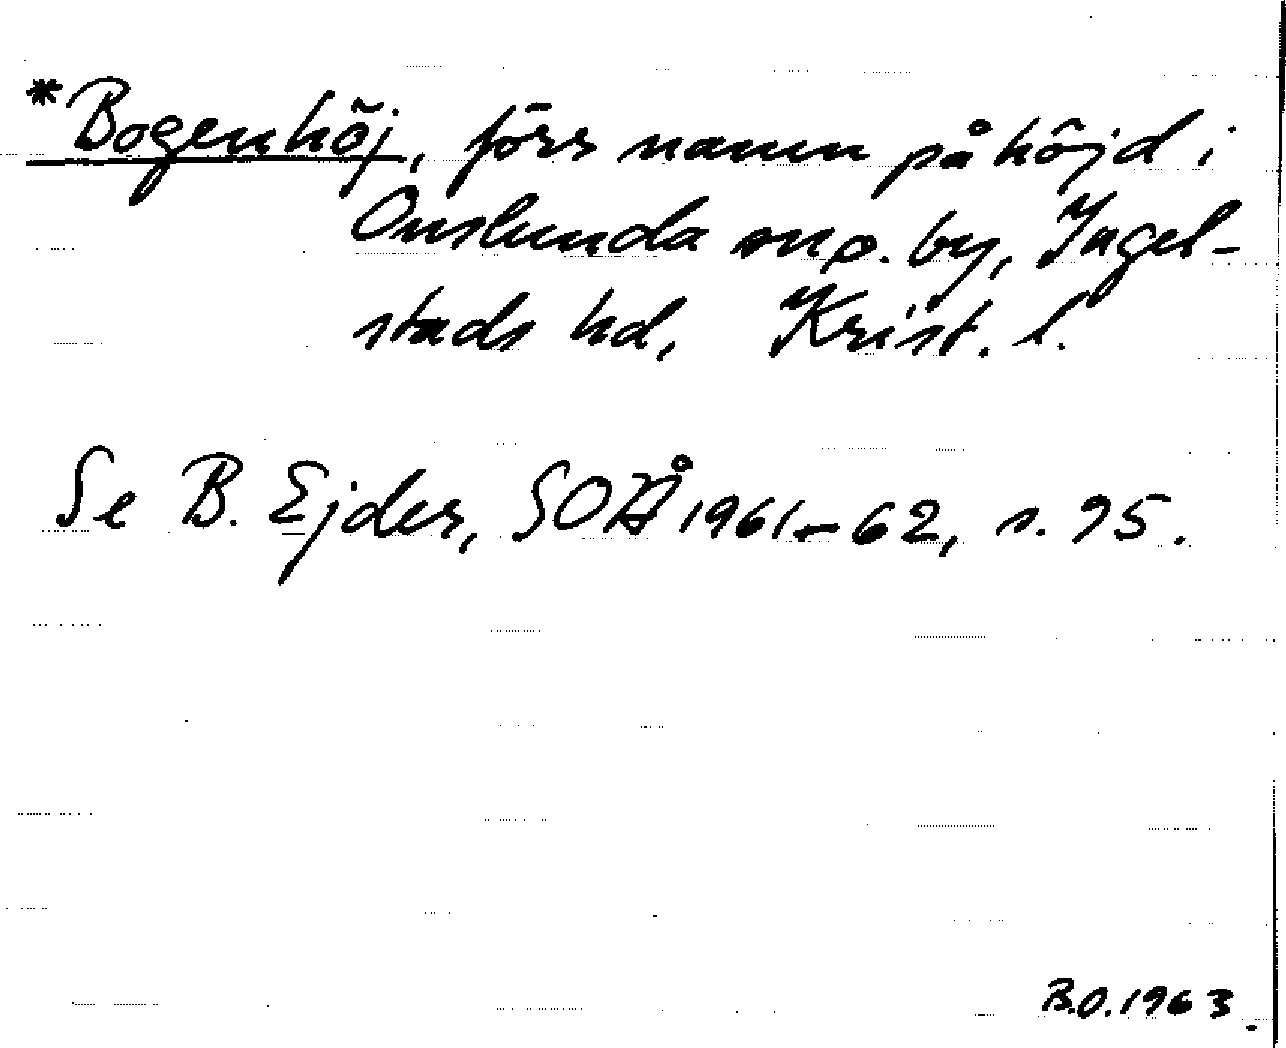 *Bogenhöj, förs namn på höjd i
Onslunda sns. by, Ingel-
stads hd, Krist. l.
Se B. Ejder, SOÅ 1961–62, s. 95.
B.O. 1963.